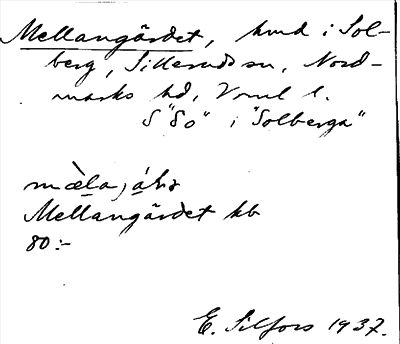 Mellangärdet, hmd i Sol-
berg, Sillerud sn, Nord-
marks hd, Vrml l.
S "80" i "Solberga"
Mellangärdet kb
80:-
E. Silfors 1937.